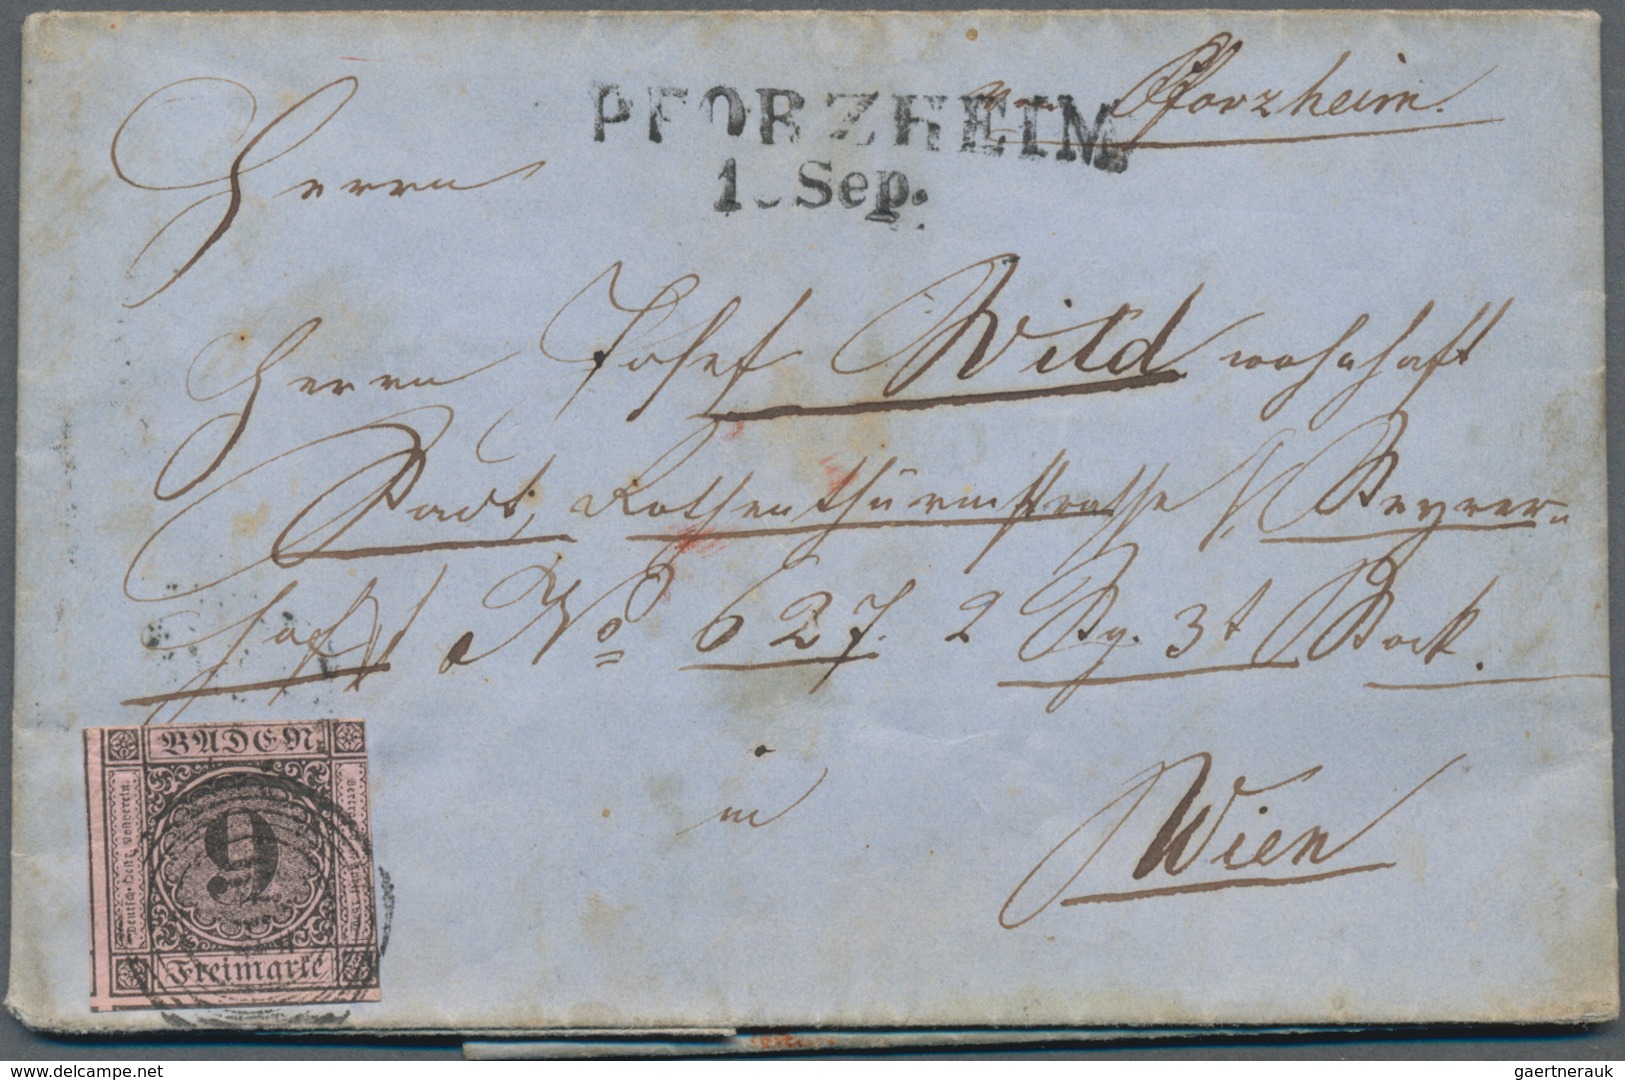 v. Pforzheim.
PFORZHEIM
1 Sep.
Herrn
Herrn Josef Wild wohnhaft
Stadt, Rothenthürmstrasse / Steyrer-
hof / No 627. 2 Stg. 3t Stock.
in
Wien
BADEN
9
Freimarke
Deutsch-Oestr. Postverein.
delcampe.net
gaertnerauk